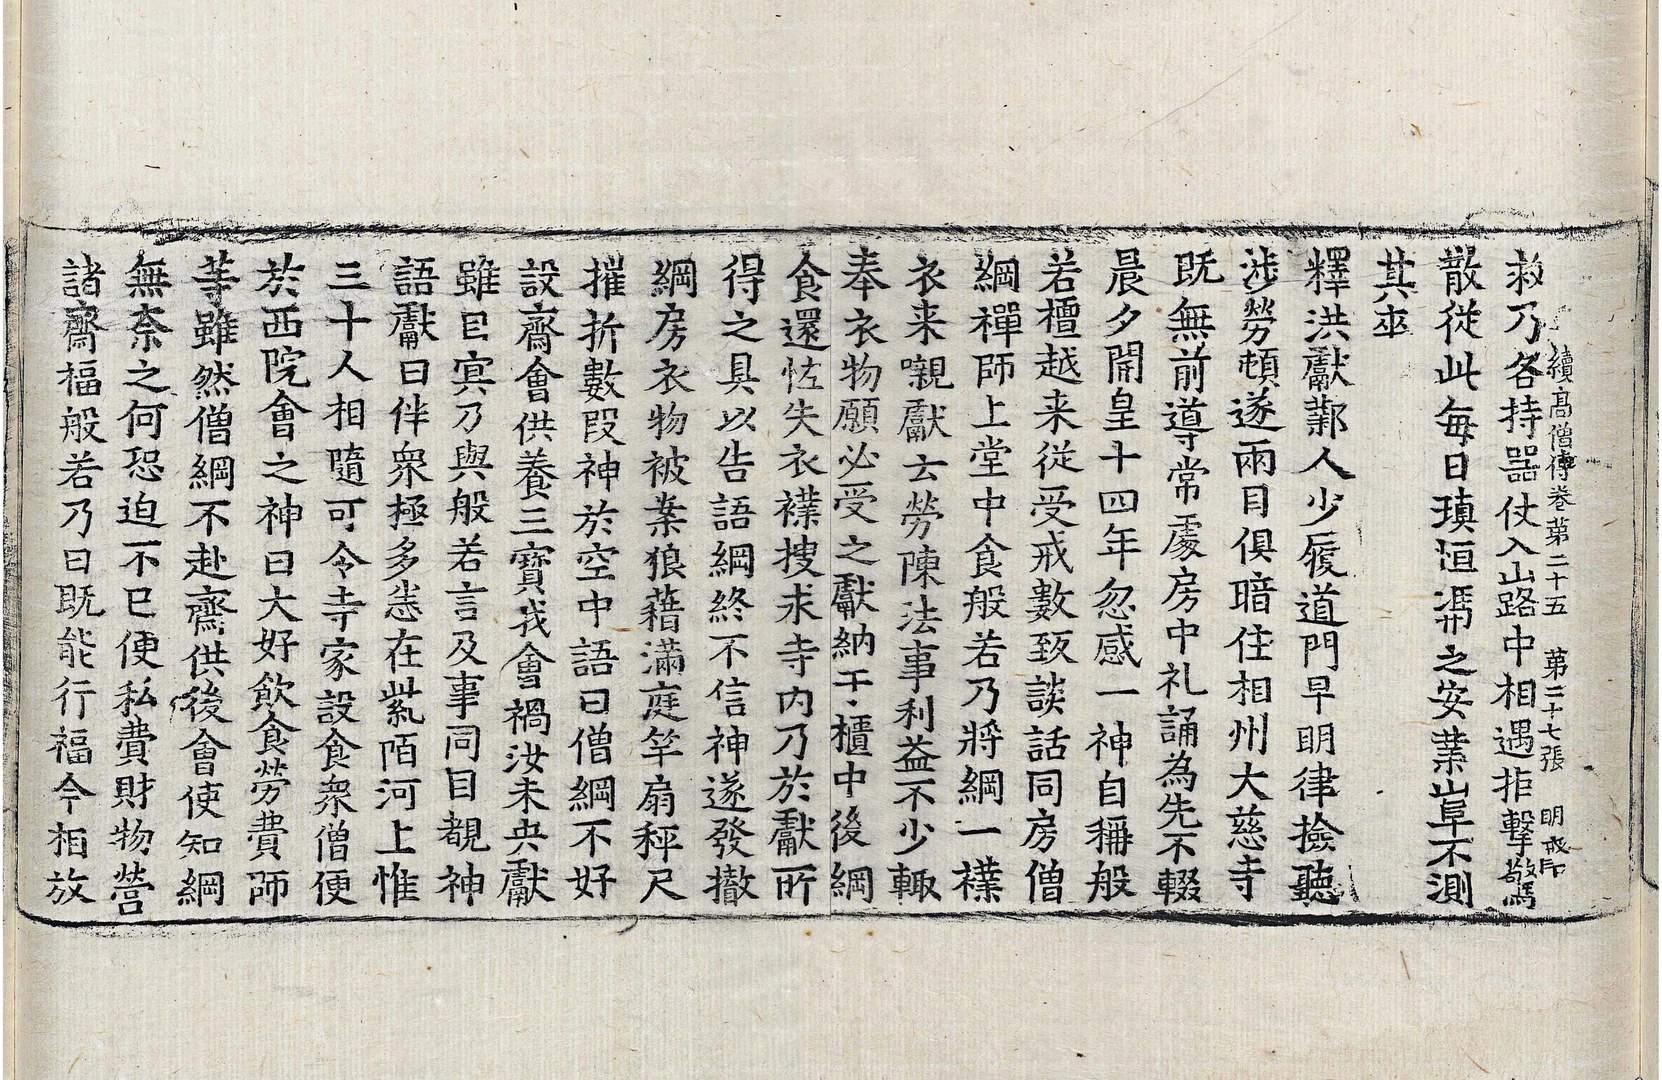 續高僧傳卷第二十五　第二十七張　明
救乃各持器仗入山路中相遇拒擊驚
散從此每日瑱恒馮之安業山阜不測
其卒
釋洪獻鄴人少履道門早明律撿聽
涉勞頓遂兩目俱暗住相州大慈寺
既無前導常處房中礼誦為先不輟
晨夕開皇十四年忽感一神自稱般
若檀越来從受戒數致談話同房僧
綱禪師上堂中食般若乃將綱一襆
衣来嚫獻云勞陳法事利益不少輙
奉衣物願必受之獻納于櫃中後綱
食還恠失衣襆搜求寺內乃於獻所
得之具以告語綱終不信神遂發撤
綱房衣物被案狼藉滿庭竿扇秤尺
摧折數段神於空中語曰僧綱不好
設齋會供養三寶我會禍汝未央獻
雖目冥乃與般若言及事同目覩神
語獻曰伴衆極多悉在紫陌河上惟
三十人相隨可令寺家設食衆僧便
於西院會之神曰大好飲食勞費師
䓁雖然僧綱不赴齋供後會使知綱
無柰之何恐迫不巳便私費財物營
諸齋福般若乃曰既能行福今相放